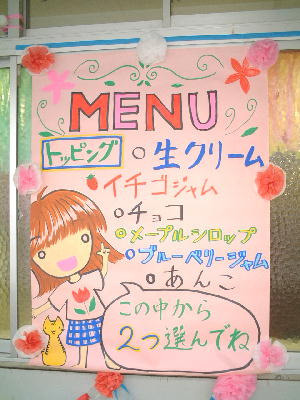 MENU
トッピング ○生クリーム
イチゴジャム
○チョコ
○メープルシロップ
○ブルーベリージャム
○あんこ
この中から
2つ選んでね